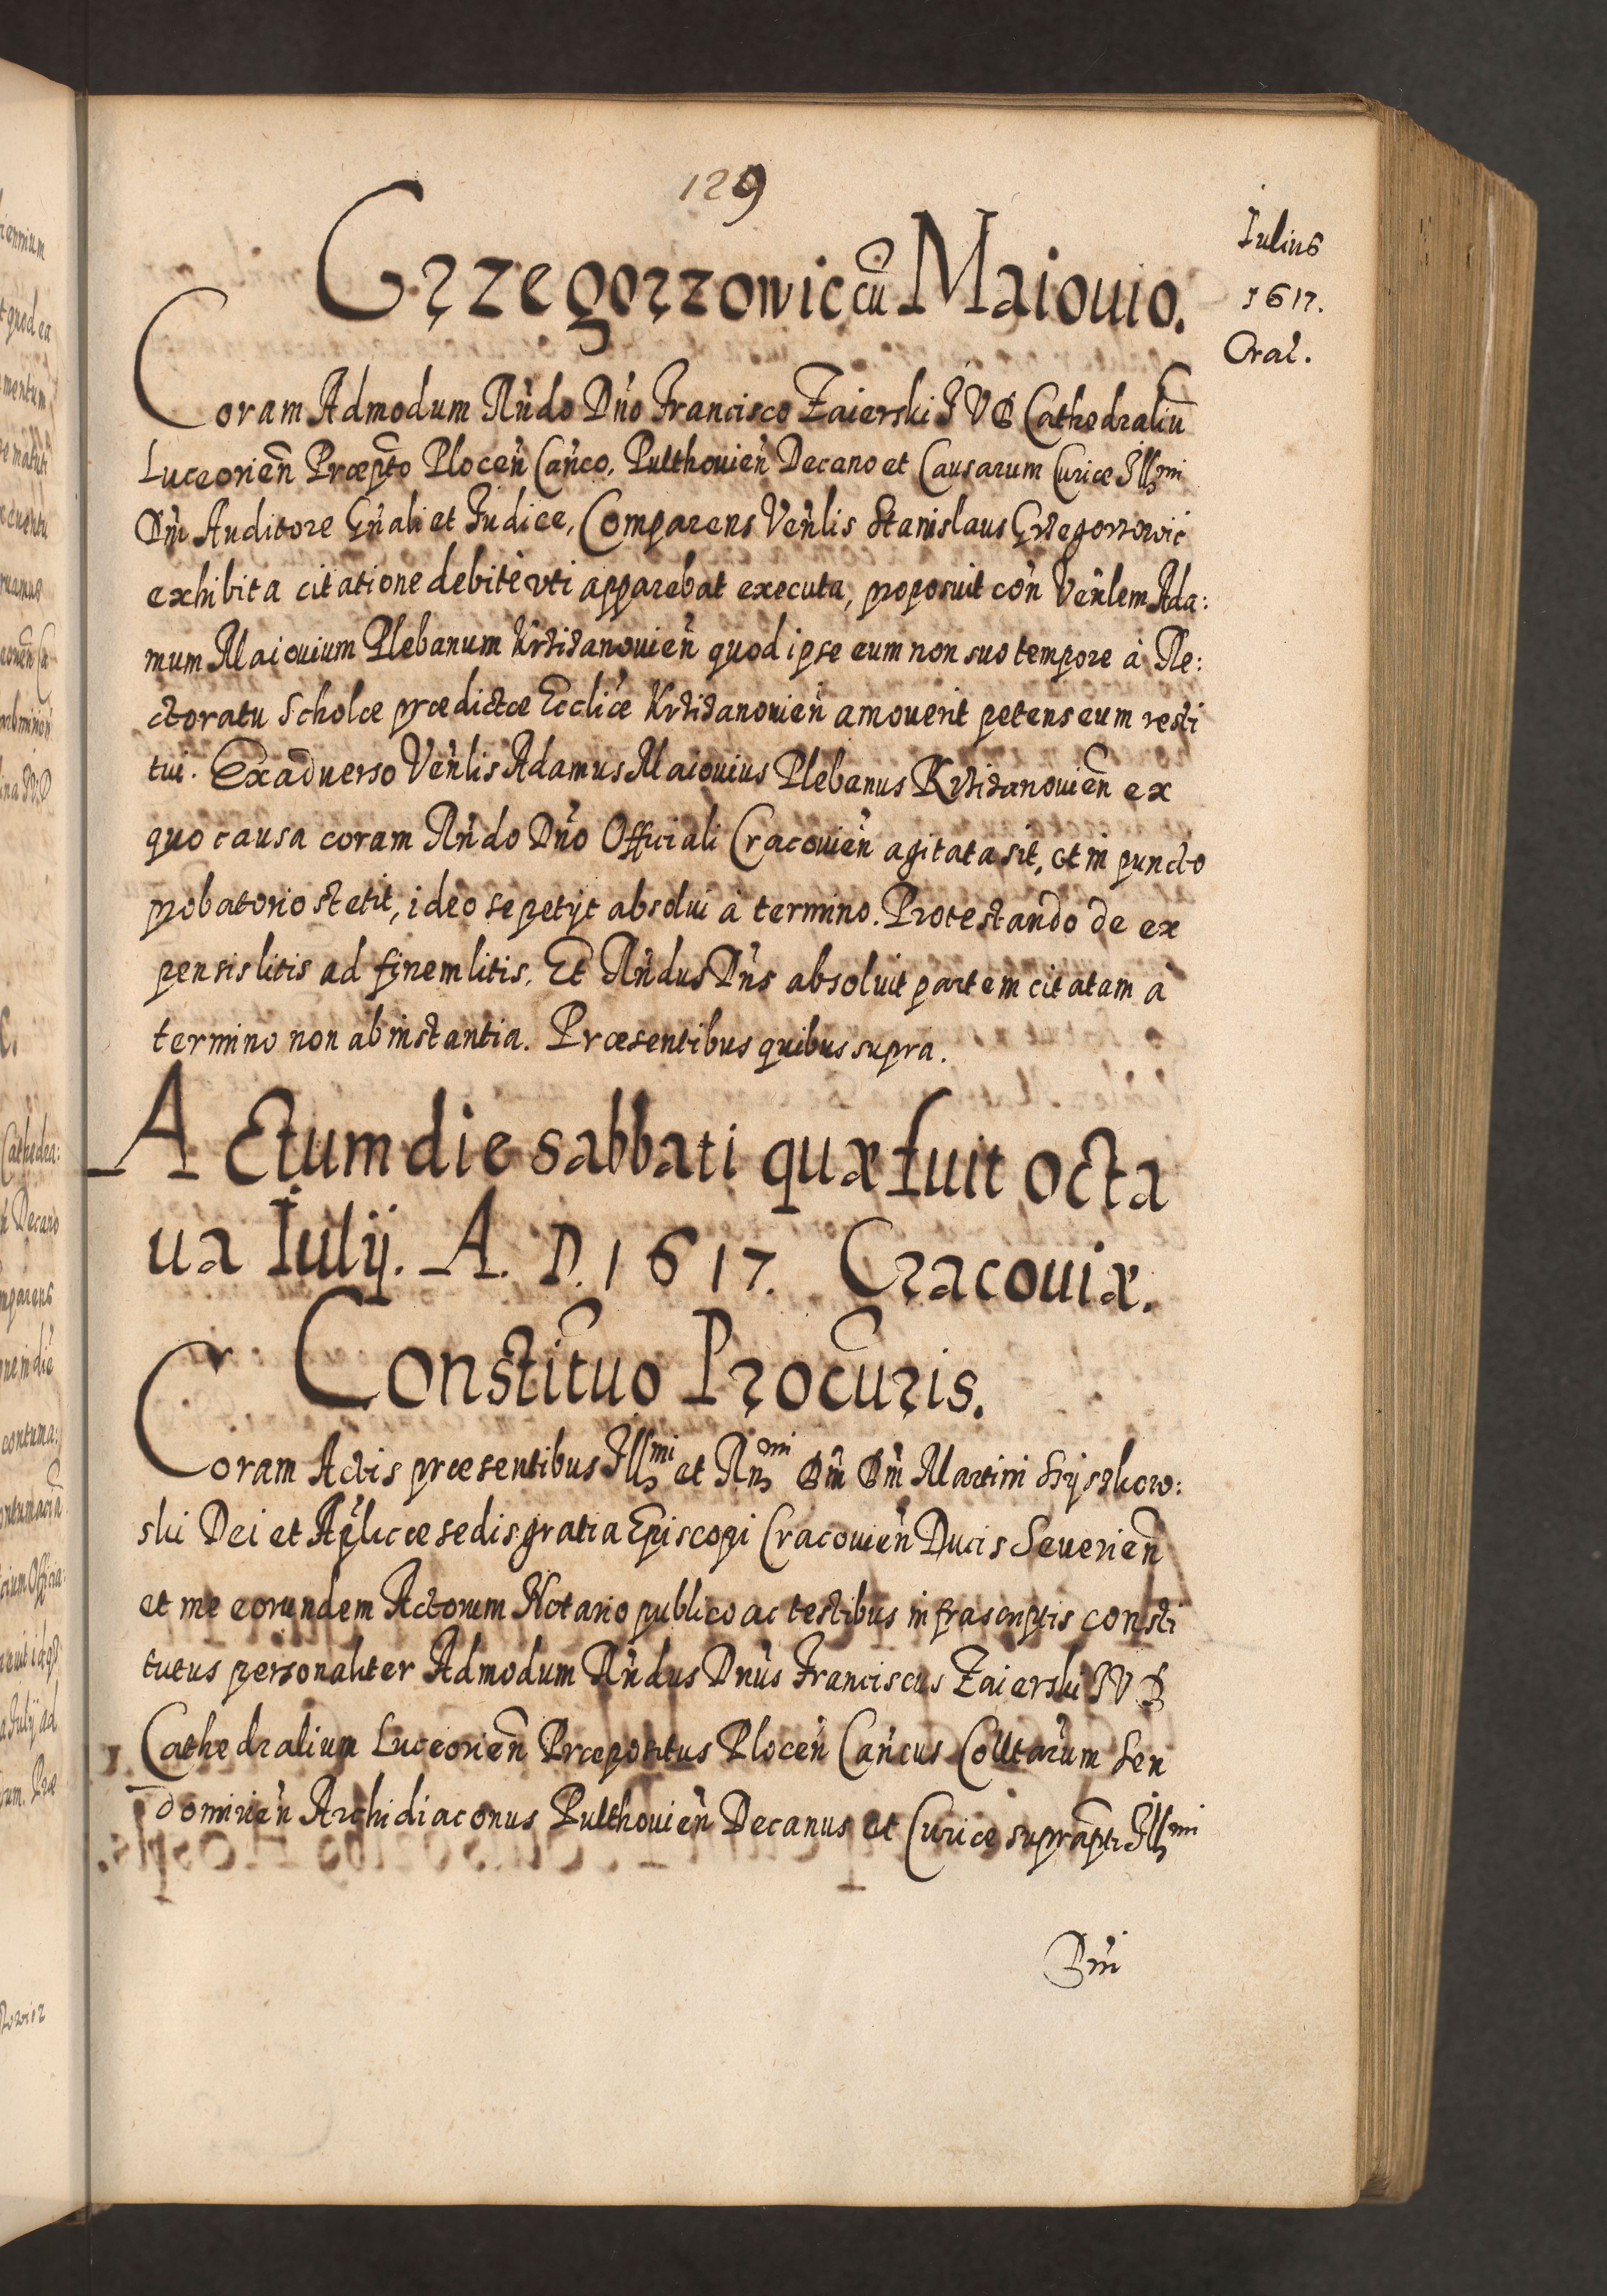 129
Iulius
1617.
Crac.
Grzegorzowic cũ Maiouio.
Coram Admodum Rńdo Dńo Francisco Zaierski I V D Cathedraliũ
Luceorieñ Præpto Ploceń Cańco, Pulthouień Decano et Causarum Curiæ Illmi
Dńi Auditore Gńali et Iudice, Comparens Veńlis Stanislaus Grzegorzowic
exhibita citatione debitè vti apparebat executa, proposuit coń Veńlem Ada:
mum Maiouium Plebanum Krzizanouień quod ipse eum non suo tempore à Re:
ctoratu Scholæ prædictæ Eccliæ Krzizanouień amouerit petens eum resti
tui. Exaduerso Veńlis Adamus Maiouius Plebanus Krzizanouieñ ex
quo causa coram Rńdo Dńo Officiali Cracouień agitata sit, et in puncto
probatorio stetit, ideo se petijt absolui à termino. Protestando de ex
pensis litis ad finem litis. Et Rńdus Dńs absoluit partem citatam à
termino non ab instantia. Præsentibus quibus supra.
Actum die sabbati quæ fuit octa
ua Iulij. A. D. 1617. Cracouiæ.
Constituo Procuris.
Coram Actis præsentibus Illmi et Rñmi Dńi Dńi Martini Szyszkow:
ski Dei et Aplicæ sedis gratia Episcopi Cracouień Ducis Seuerieñ
et me eorundem Actorum Notario publico ac testibus infrascriptis consti
tutus personaliter Admodum Rńdus Dńus Franciscus Zaierski I V D
Cathedralium Luceorieñ Præpositus Ploceń Cańcus Colltarum Sen
domirień Archidiaconus Pulthouień Decanus et Curiæ suprapti Illmi
Dńi